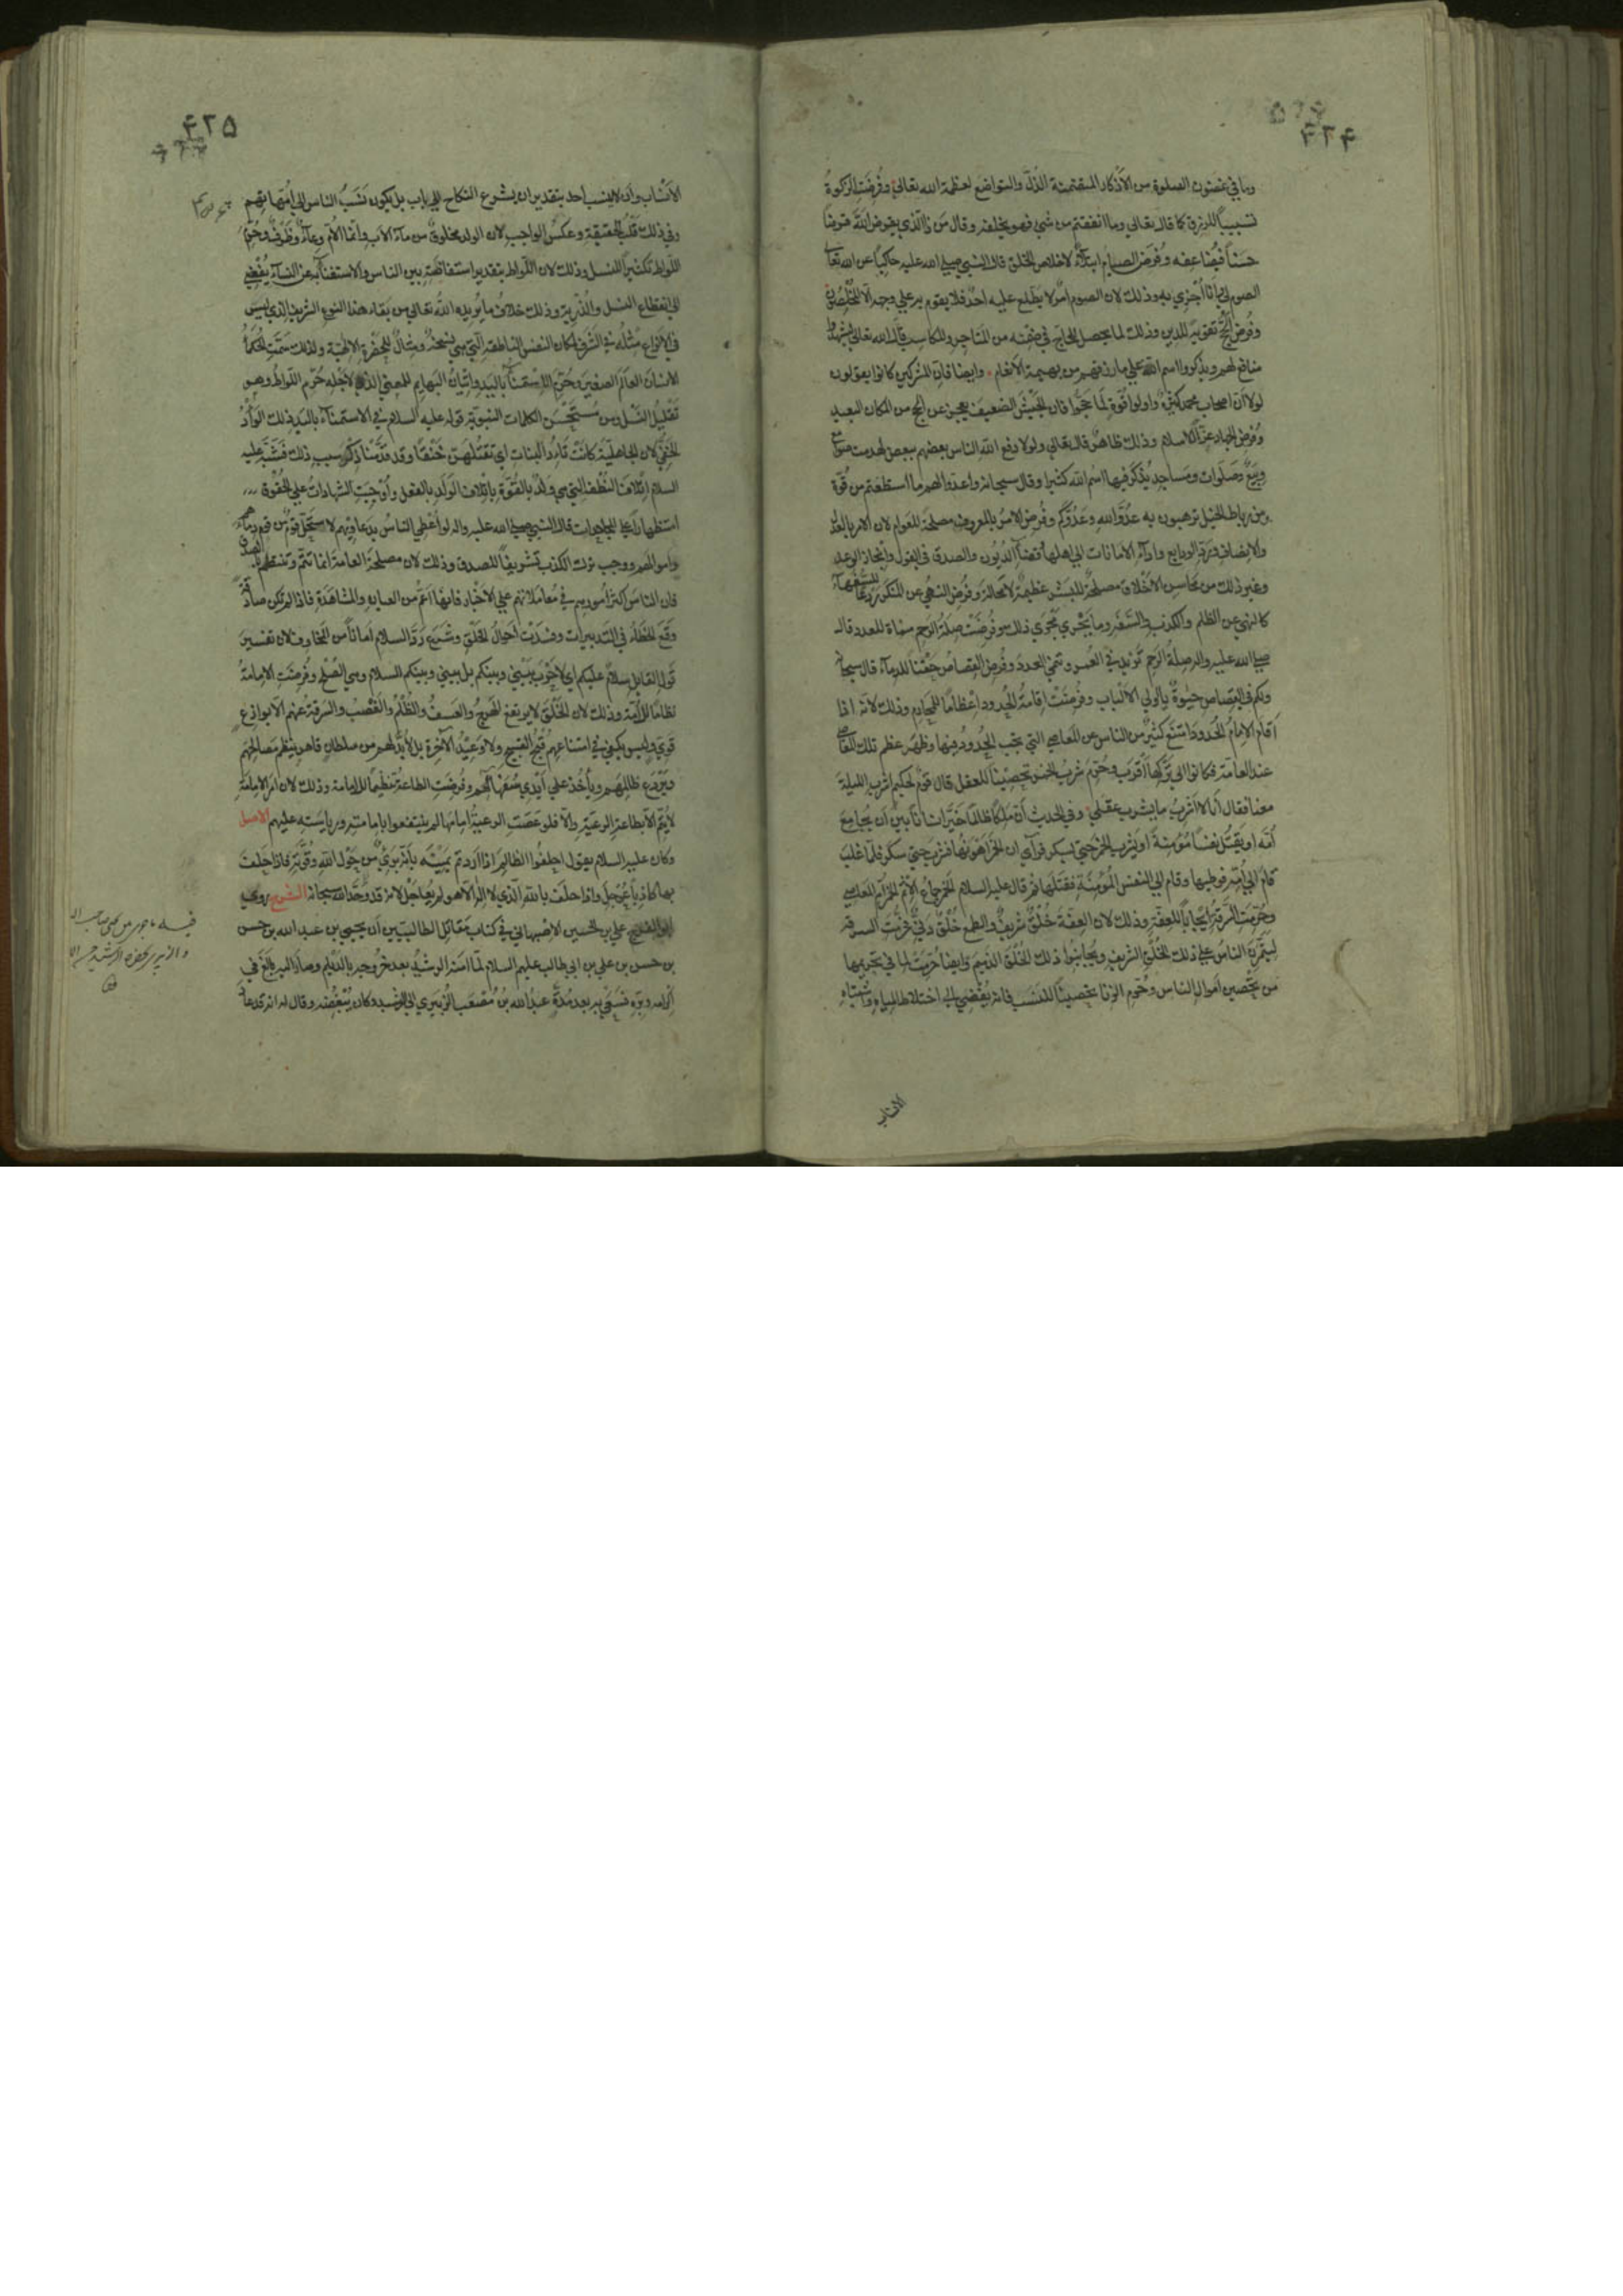 ۴۲۴
وما في غضون الصلوة من الأذكار المتضمنة الذل والتواضع لعظمة الله تعالى وفرضت الزكوة
تسبيبا للرزق كما قال تعالى وما انفقتم من شئ فهو يخلفه وقال من ذا الذي يقرض الله قرضا
حسنا فيضاعفه وفرض الصيام ابتلاء لاخلاص الخلق قال النبي صلى الله عليه حاكيا عن الله تعالى
الصوم لي وانا اجزي به وذلك لان الصوم امر لا يطلع عليه احد فلا يقوم به على وجهه الا المخلصون
وفرض الحج تقوية للدين وذلك لما يحصل للحاج في ضمنه من المتاجر والمكاسب قال الله تعالى ليشهدوا
منافع لهم ويذكروا اسم الله على ما رزقهم من بهيمة الانعام وايضا فان المشركين كانوا يقولون
لولا ان اصحاب محمد كثير واولوا قوة لما حجوا فان الجيش الضعيف يعجز عن الحج من المكان البعيد
وفرض الجهاد عزا للاسلام وذلك ظاهر قال تعالى ولولا دفع الله الناس بعضهم ببعض لهدمت صوامع
وبيع وصلوات ومساجد يذكر فيها اسم الله كثيرا وقال سبحانه واعدوا لهم ما استطعتم من قوة
ومن رباط الخيل ترهبون به عدو الله وعدوكم وفرض الامر بالمعروف مصلحة للعوام لان الامر بالعدل
والانصاف ورد الودايع واداء الامانات الى اهلها وقضاء الديون والصدق في القول وانجاز الوعد
وغير ذلك من محاسن الاخلاق مصلحة للبشر عظيمة لا محالة وفرض النهي عن المنكر ردعا للسفهاء
كالنهي عن الظلم والكذب والسفه وما يجري مجرى ذلك وفرضت صلة الرحم منماة للعدد قال
صلى الله عليه واله صلة الرحم تزيد في العمر وتنمي العدد وفرض القصاص حقنا للدماء قال سبحانه
ولكم في القصاص حيوة يا اولي الالباب وفرضت اقامة الحدود اعظاما للمحارم وذلك لانه اذا
اقام الامام الحدود امتنع كثير من الناس عن المعاصي التي تجب الحدود فيها وظهر عظم تلك المعاصي
عند العامة فكانوا الى تركها اقرب وحرم شرب الخمر تحصينا للعقل قال قوم لحكيم اشرب الليلة
معنا فقال انا لا اشرب ما يشرب عقلي وفي الحديث ان ملكا ظالما خير انسانا بين ان يجامع
امه او يقتل نفسا مؤمنة او يشرب الخمر حتى يسكر فرأى ان الخمر اهونها فشرب حتى سكر فلما غلب
قام الى امه فوطيها وقام الى النفس المؤمنة فقتلها ثم قال عليه السلام الخمر جماع الاثم الخمر ام المعاصي
وحرمت السرقة ايجابا للعفة وذلك لان العفة خلق شريف والطمع خلق دني فحرمت السرقة
ليتمرن الناس على ذلك الخلق الشريف ويجانبوا ذلك الخلق الذميم وايضا حرمت لما في تحريمها
من تحصين اموال الناس وحرم الزنا تحصينا للنسب فانه يفضي الى اختلاط المياه واشتباه
الانساب
۴۲۵
الانساب وان لا ينسب احد بتقدير ان يشرع النكاح الى اب بل يكون نسب الناس الى امهاتهم
وفي ذلك قلب الحقيقة وعكس الواجب لان الولد مخلوق من ماء الاب وانما الام وعاء وظرف وحرم
اللواط تكثيرا للنسل وذلك لان اللواط بتقدير استفاضته بين الناس والاستغناء به عن النساء يفضي
الى انقطاع النسل والذرية وذلك خلاف ما يريد الله تعالى من بقاء هذا النوع الشريف الذي ليس
في الانواع مثله في الشرف لمكان النفس الناطقة التي هي نسخة ومثال للحضرة الالهية ولذلك سمت الحكماء
الانسان العالم الصغير وحرم الاستمناء باليد واتيان البهايم للمعنى الذي لاجله حرم اللواط وهو
تقليل النسل ومن مستحسن الكلمات النبوية قوله عليه السلام في الاستمناء باليد ذلك الوأد
الخفي لان الجاهلية كانت تئد البنات اي تقتلهن خنقا وقد قدمنا ذكر سبب ذلك فشبه عليه
السلام اتلاف النطفة التي هي ولد بالقوة باتلاف الولد بالفعل واوجبت الشهادات على الحقوق
استظهارا على المجاحدات قال النبي صلى الله عليه واله لو اعطي الناس بدعاويهم لاستحل قوم من قوم دماءهم
واموالهم ووجب ترك الكذب تشريفا للصدق وذلك لان مصلحة العامة انما تتم وتنتظم بالصدق
فان الناس اكثر امورهم في معاملاتهم على الاخبار فانها اعم من العيان والمشاهدة فاذا لم تكن صادقة
وقع الخطأ في التدبيرات وفسدت احوال الخلق وشرع رد السلام امانا من المخاوف لان تفسير
قول القايل سلام عليكم اي لا حرب بيني وبينكم بل بيني وبينكم السلام وهي الصلح وفرضت الامامة
نظاما للامة وذلك لان الخلق لا يرتفع الهرج والعسف والظلم والغصب والسرقة عنهم الا بوازع
قوي وليس يكفي في امتناعهم قبح القبيح ولا وعيد الآخرة بل لا بد لهم من سلطان قاهر ينظم مصالحهم
ويردع ظالمهم ويأخذ على ايدي سفهائهم وفرضت الطاعة تعظيما للامامة وذلك لان امر الامامة
لا يتم الا بطاعة الرعية والا فلو عصت الرعية امامها لم ينتفعوا بامامته ورياسته عليهم الاصل
وكان عليه السلام يقول احلفوا الظالم اذا اردتم يمينه بأنه بري من حول الله وقوته فانه اذا حلف
بها كاذبا عوجل واذا حلف بالله الذي لا اله الا هو لم يعاجل لانه قد وحد الله سبحانه الشرح روى
ابو الفرج علي بن الحسين الاصبهاني في كتاب مقاتل الطالبيين ان يحيى بن عبد الله بن حسن
بن حسن بن علي بن ابي طالب عليهم السلام لما امنه الرشيد بعد خروجه بالديلم وصار اليه بالغ في
اكرامه وبره فسعى به بعد مدة عبد الله بن مصعب الزبيري الى الرشيد وكان يبغضه وقال له انه قد عاد